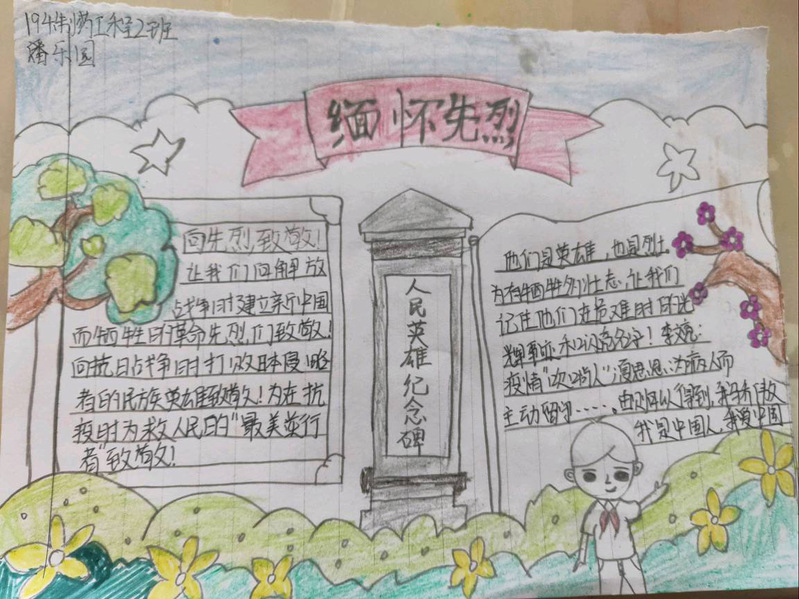 194制药工程2班
潘乐园
缅怀先烈
向先烈致敬!
让我们向解放
战争时建立新中国
而牺牲的革命先烈们致敬!
向抗日战争时打败日本侵略
者的民族英雄致敬!为在抗
疫时为救人民的“最美逆行
者”致敬!
人民英雄纪念碑
他们是英雄,也是烈士
为有牺牲多壮志,让我们
记住他们在危难时的光
辉事迹和闪亮名字!李文亮:
疫情“吹哨人”;夏思思:为病人而
主动留守……。由
我是中国人,我爱中国